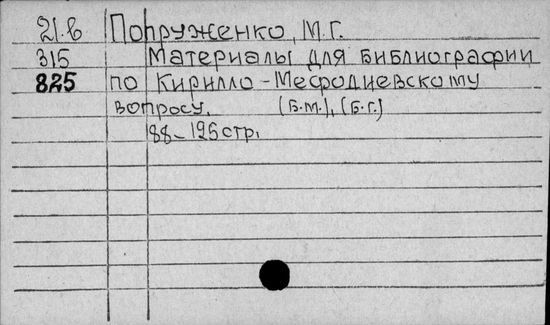 21.в Попруженко, М.Г.
315 Материалы для библиографии
825 по Кирилло-Мефодиевскому
вопросу. (Б.М.), (Б.г.)
88-125стр.